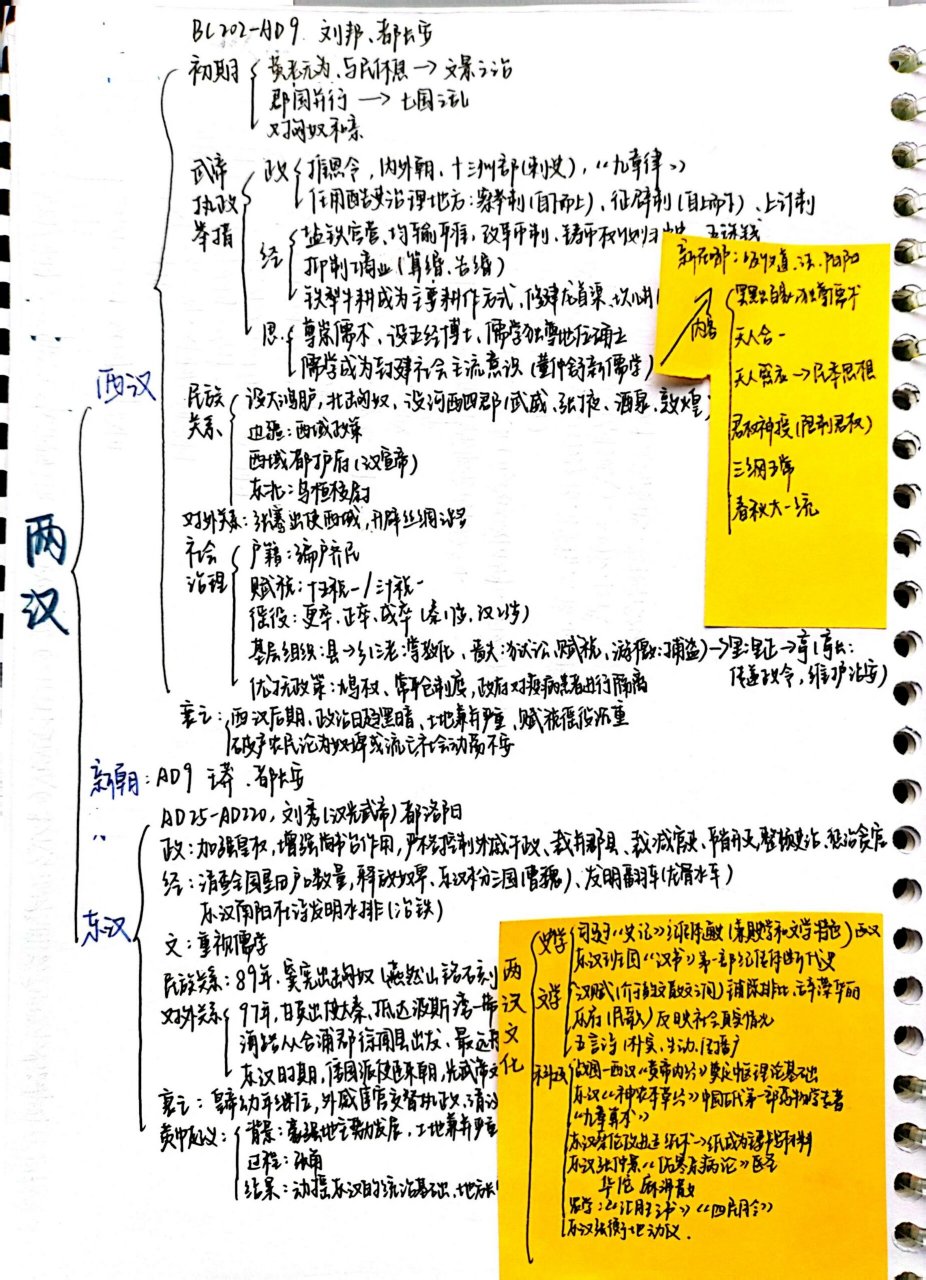 BC202-AD9 刘邦、都长安
两汉
西汉
初期
黄老无为、与民休息→文景之治
郡国并行→七国之乱
对匈奴和亲
武帝执政举措
政
推恩令，内外朝、十三州部(刺史)，《九章律》
任用酷吏治理地方：察举制(自下而上)、征辟制(自上而下)、上计制
经
盐铁官营、均输平准，改革币制、铸币权收归 五铢钱
抑制商业(算缗、告缗)
铁犁牛耕成为主要耕作方式，修建龙首渠
思
尊崇儒术、设五经博士，儒学独尊地位确立
儒学成为封建社会主流意识(董仲舒新儒学)
新在哪：吸收道、法、阴阳
内容
罢黜百家独尊儒术
天人合一
天人感应→民本思想
君权神授(限制君权)
三纲五常
春秋大一统
民族关系
设大鸿胪，北击匈奴、设河西四郡(武威、张掖、酒泉、敦煌)
西域都护府(汉宣帝)
东北：乌桓校尉
对外关系：张骞出使西域，开辟丝绸之路
社会治理
户籍：编户齐民
赋税：十五税一/三十税一
徭役：更卒、正卒、戍卒
基层组织：县→乡(三老：掌教化、啬夫：狱讼、赋税、游徼：捕盗)→里：里正→亭(亭长：
传递政令，维护治安)
优抚政策：鸠杖、常平仓制度，政府对疫病患者进行隔离
衰亡：西汉后期，政治日趋黑暗、土地兼并严重、赋税徭役沉重
破产农民沦为奴婢或流亡社会动荡不安
新朝：AD9 王莽、都长安
东汉
AD25-AD220，刘秀(汉光武帝)都洛阳
政：加强皇权，增强尚书台作用，严格控制外戚干政、裁并郡县、裁减官吏、节省开支，整顿吏治、惩治贪官
经：清查全国垦田户口数量，释放奴婢、东汉末分三国(曹魏)、发明翻车(龙骨水车)
东汉南阳杜诗发明水排(冶铁)
文：重视儒学
民族关系：89年，窦宪出击匈奴(燕然山铭石刻
对外关系
97年，甘英出使大秦，抵达波斯湾一带
海路从合浦郡徐闻县出发、最远
东汉时期，倭国派使臣来朝，光武帝
衰亡：皇帝幼年继位，外戚宦官交替执政、
黄巾起义：
背景：豪强地主势力发展，土地兼并严重
过程：张角
结果：动摇东汉的统治基础、地方
两汉文化
史学
司马迁《史记》纪传体通史(兼具史学和文学特色)西汉
东汉班固《汉书》第一部纪传体断代史
文学
汉赋(介于韵文散文之间)铺陈排比、辞藻华丽
乐府(民歌)反映社会真实情况
五言诗(朴实、生动、
科技
战国-西汉《黄帝内经》奠定中医理论基础
东汉《神农本草经》中国古代第一部药物学专著
《九章算术》
东汉蔡伦改进造纸术→纸成为主要书写材料
东汉张仲景《伤寒杂病论》医圣
华佗 麻沸散
农学：《氾胜之书》《四民月令》
东汉张衡地动仪.